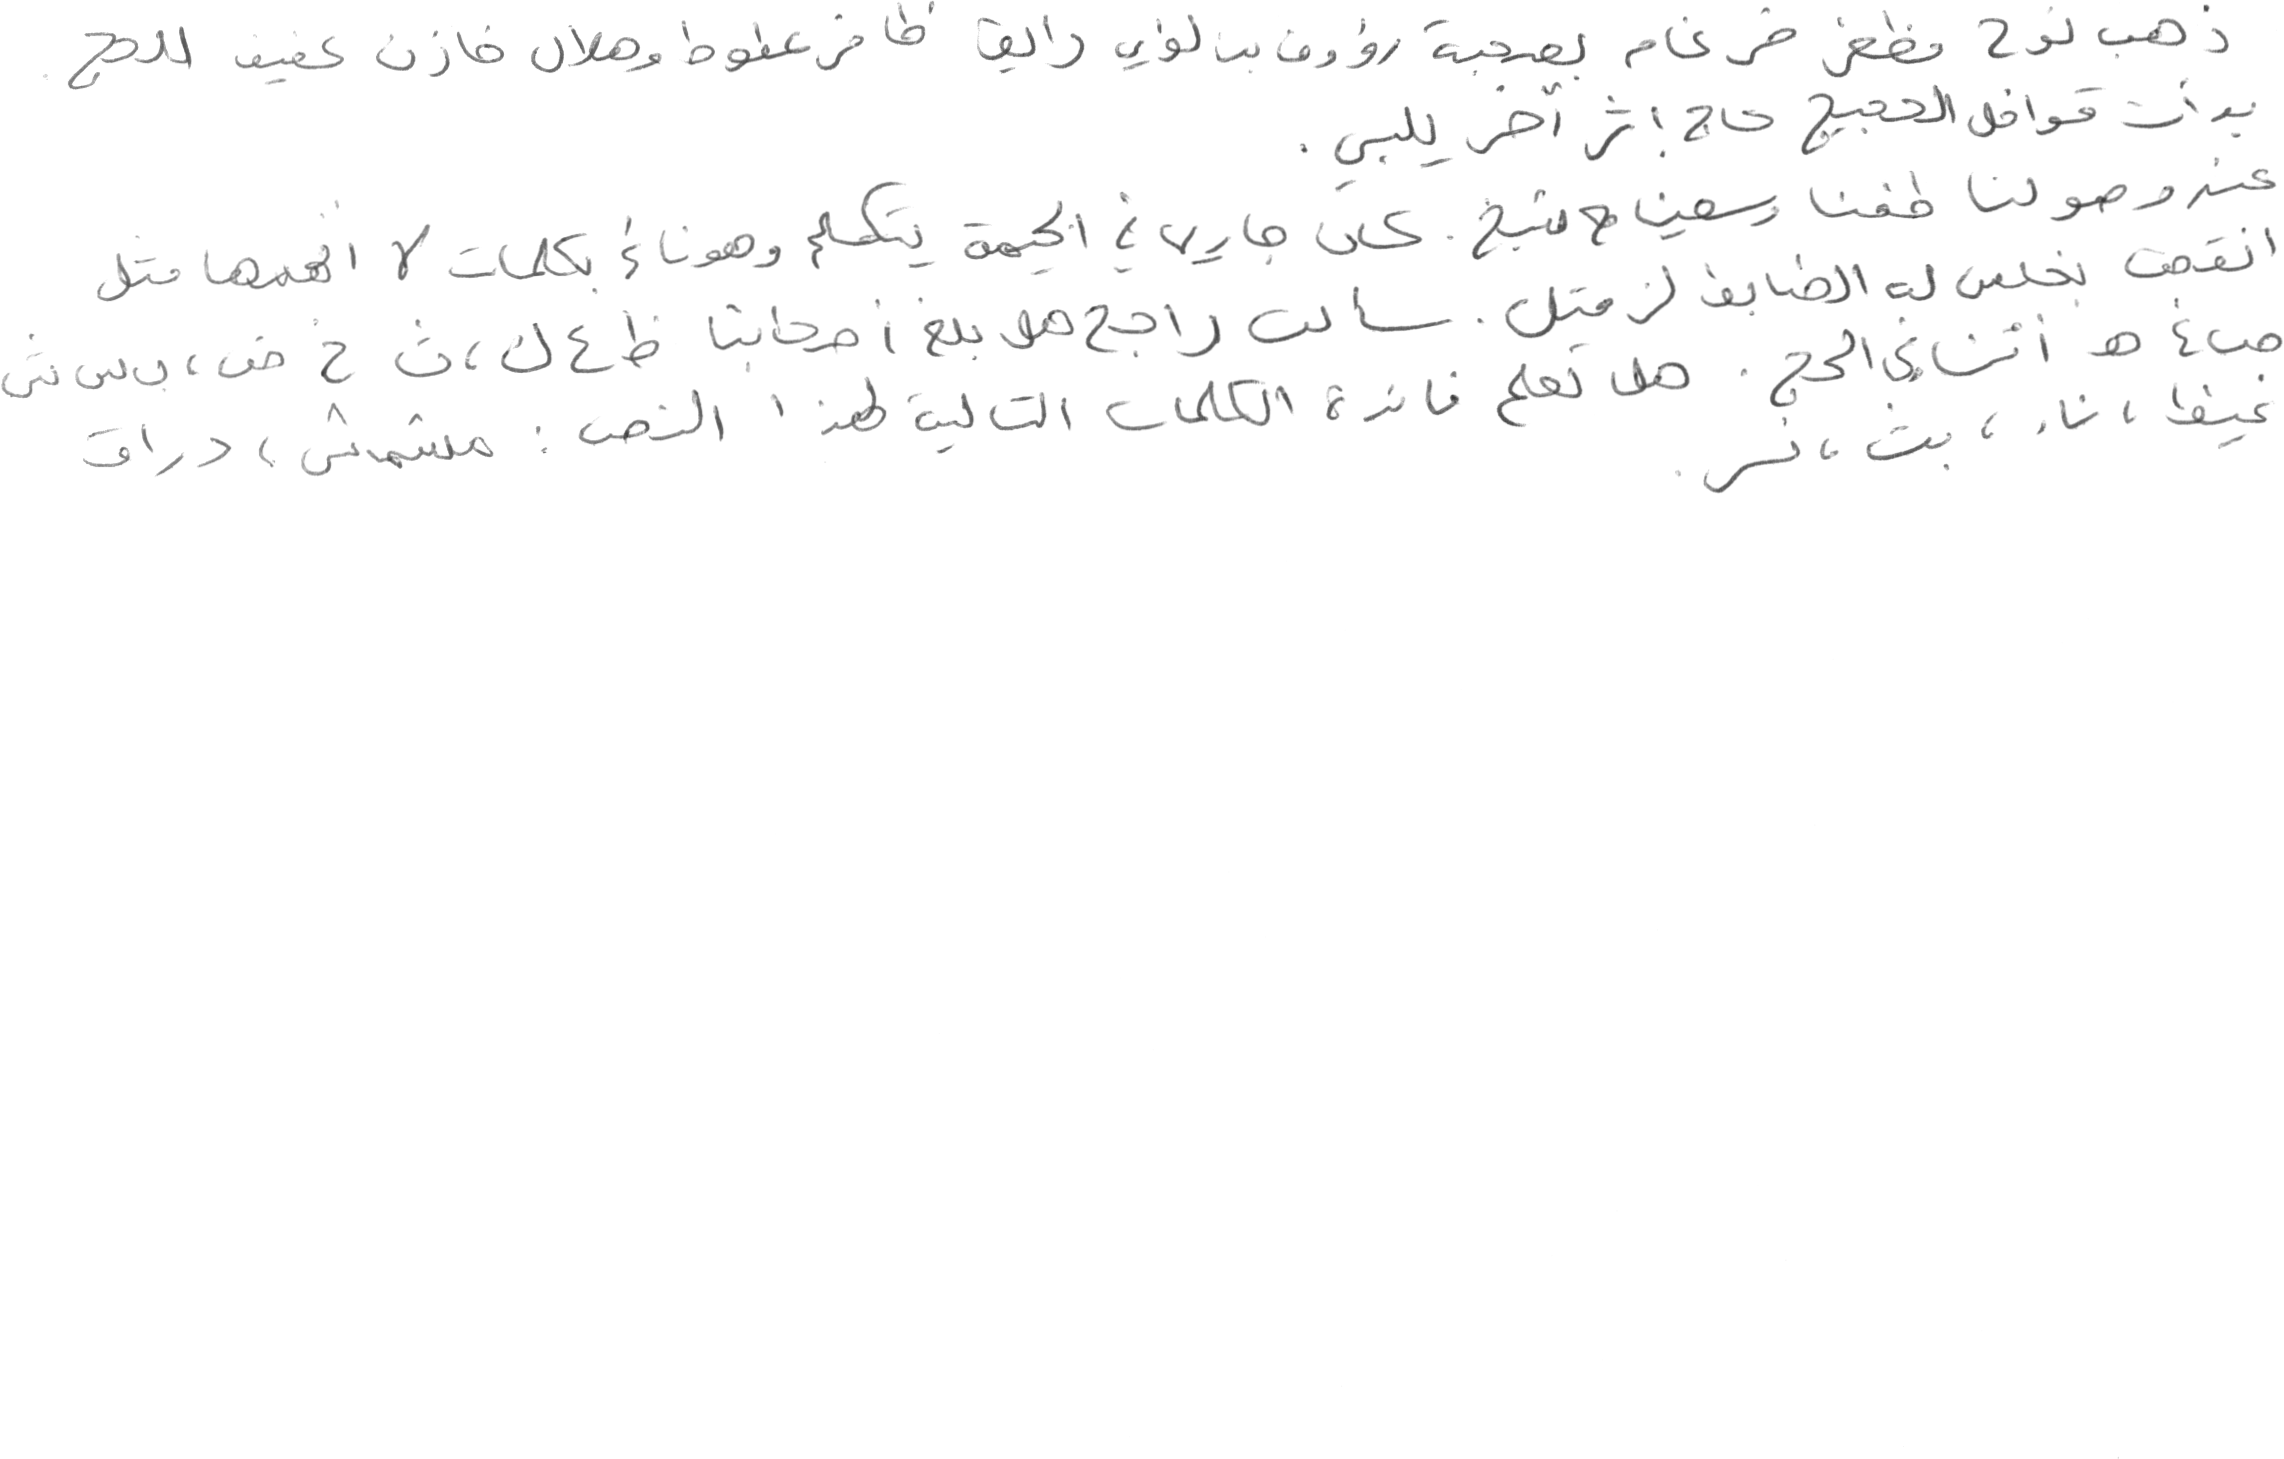 ذهب نوح مظفر ضرغام بصحبة رؤوف بن لؤي رايق ظافر عطوط وهلال خازن عفيف للحج.
بدأت قوافل الحجيج حاج إثر آخر يلبي.
عند وصولنا طفنا وسعينا مع شيخ. كان جاري في الخيمة يتكلم وهو نائم بكلمات لا أفهمها مثل
انقض بخلس له الضابط لز متيل. سألت راجح هل بلغ أصحابنا ظ ع ك، ث خ ض، ب س ش
ص غ هـ أثناء الحج. هل تعلم فائدة الكلمات التالية لهذا النص: مشمش، دراق
غيظ، ناء، بث، نسر.